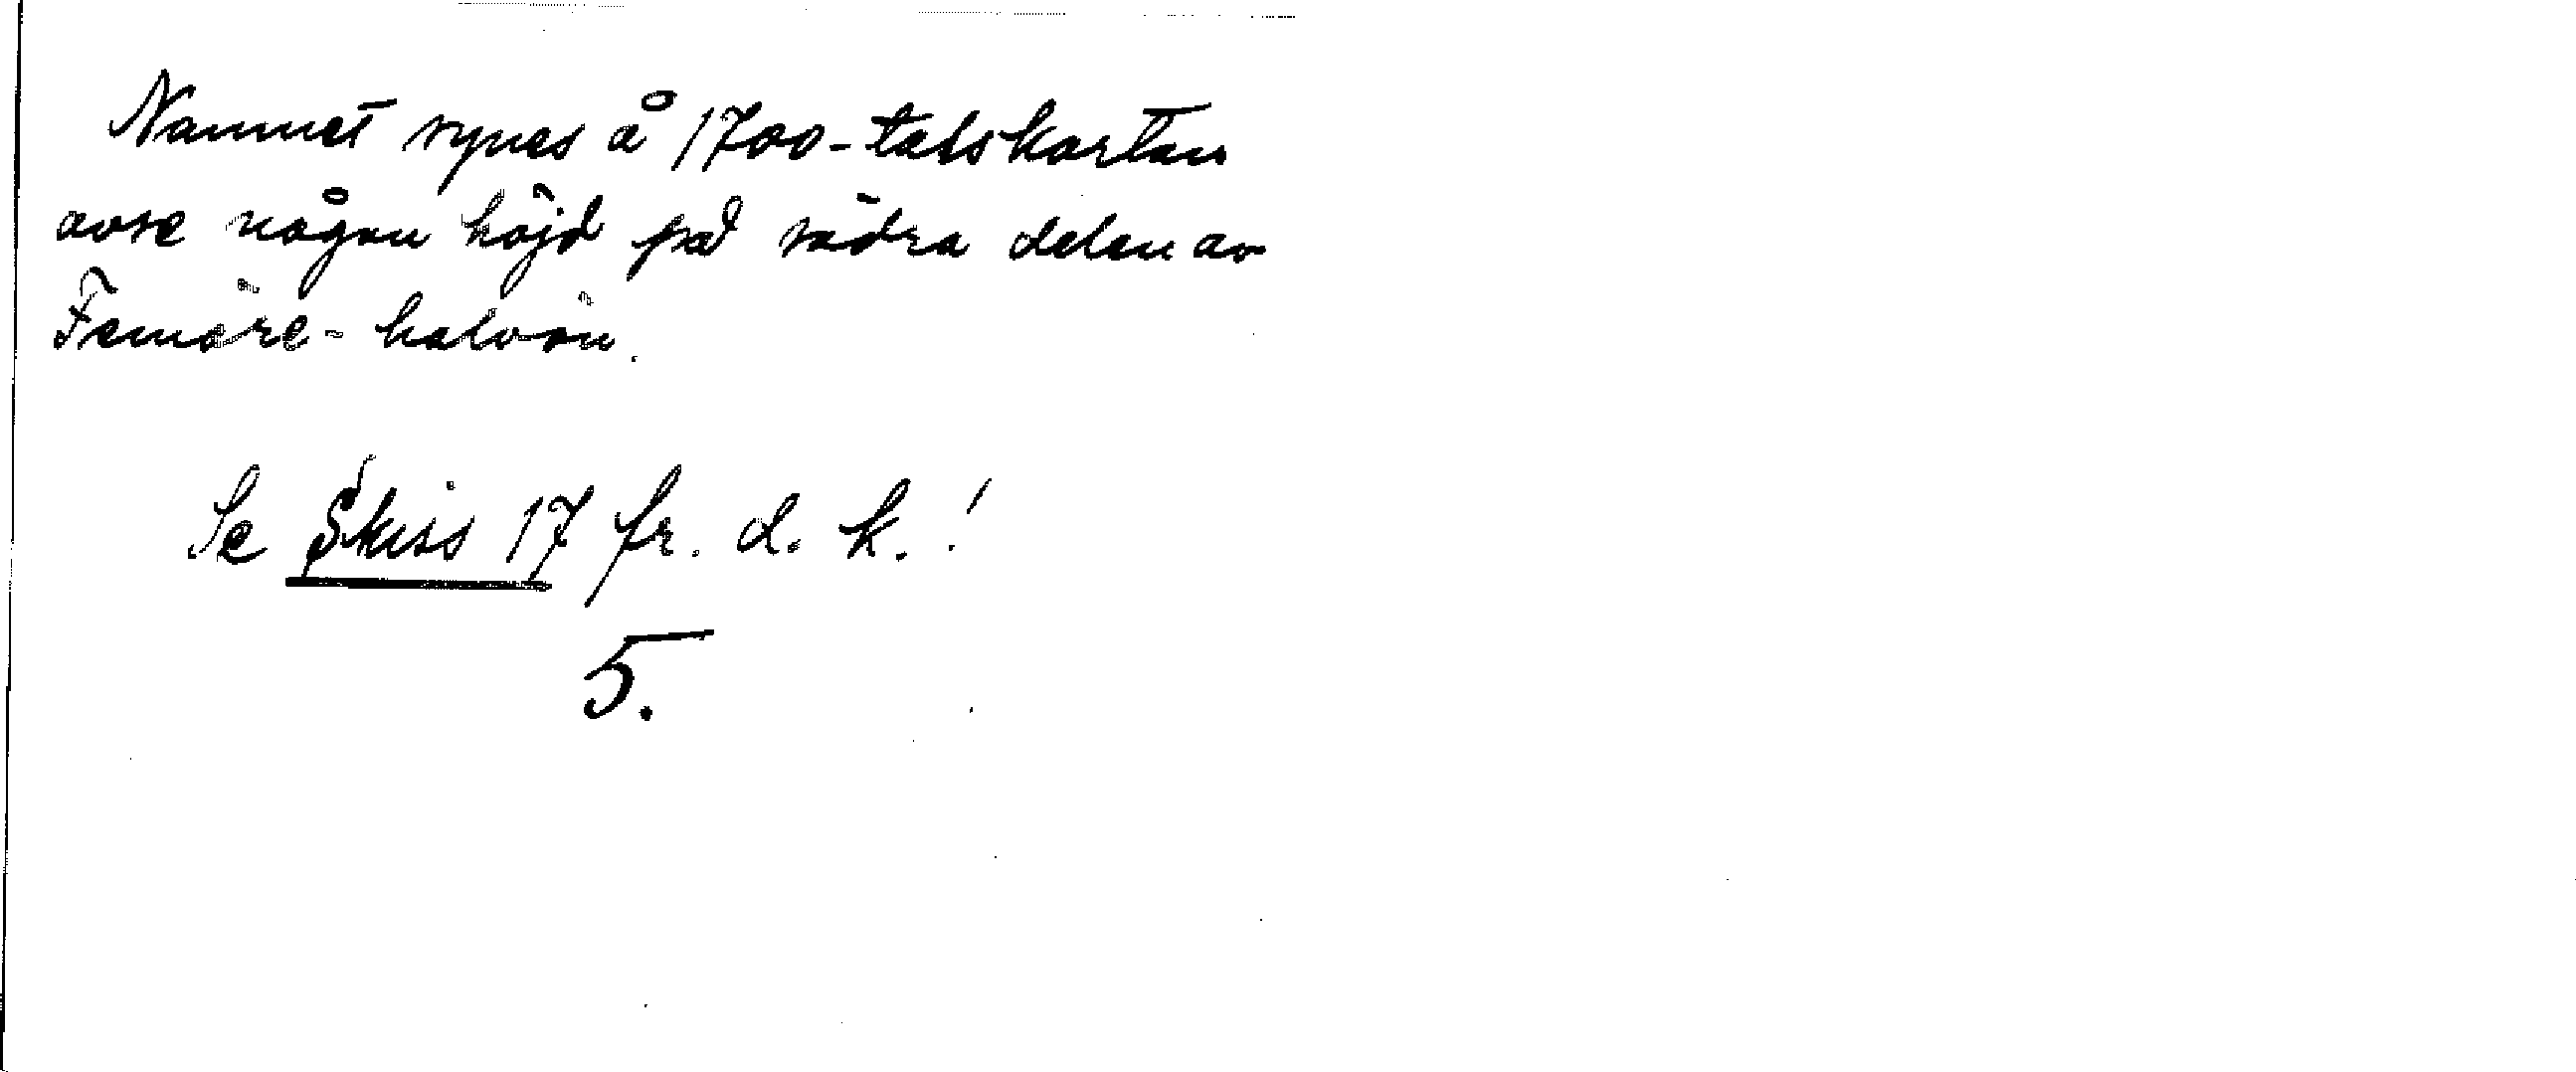 Namnet synes å 1700-talskartan
avse någon höjd på södra delen av
Femöre-halvön.
Se Skiss 17 fr. d. k.!
5.